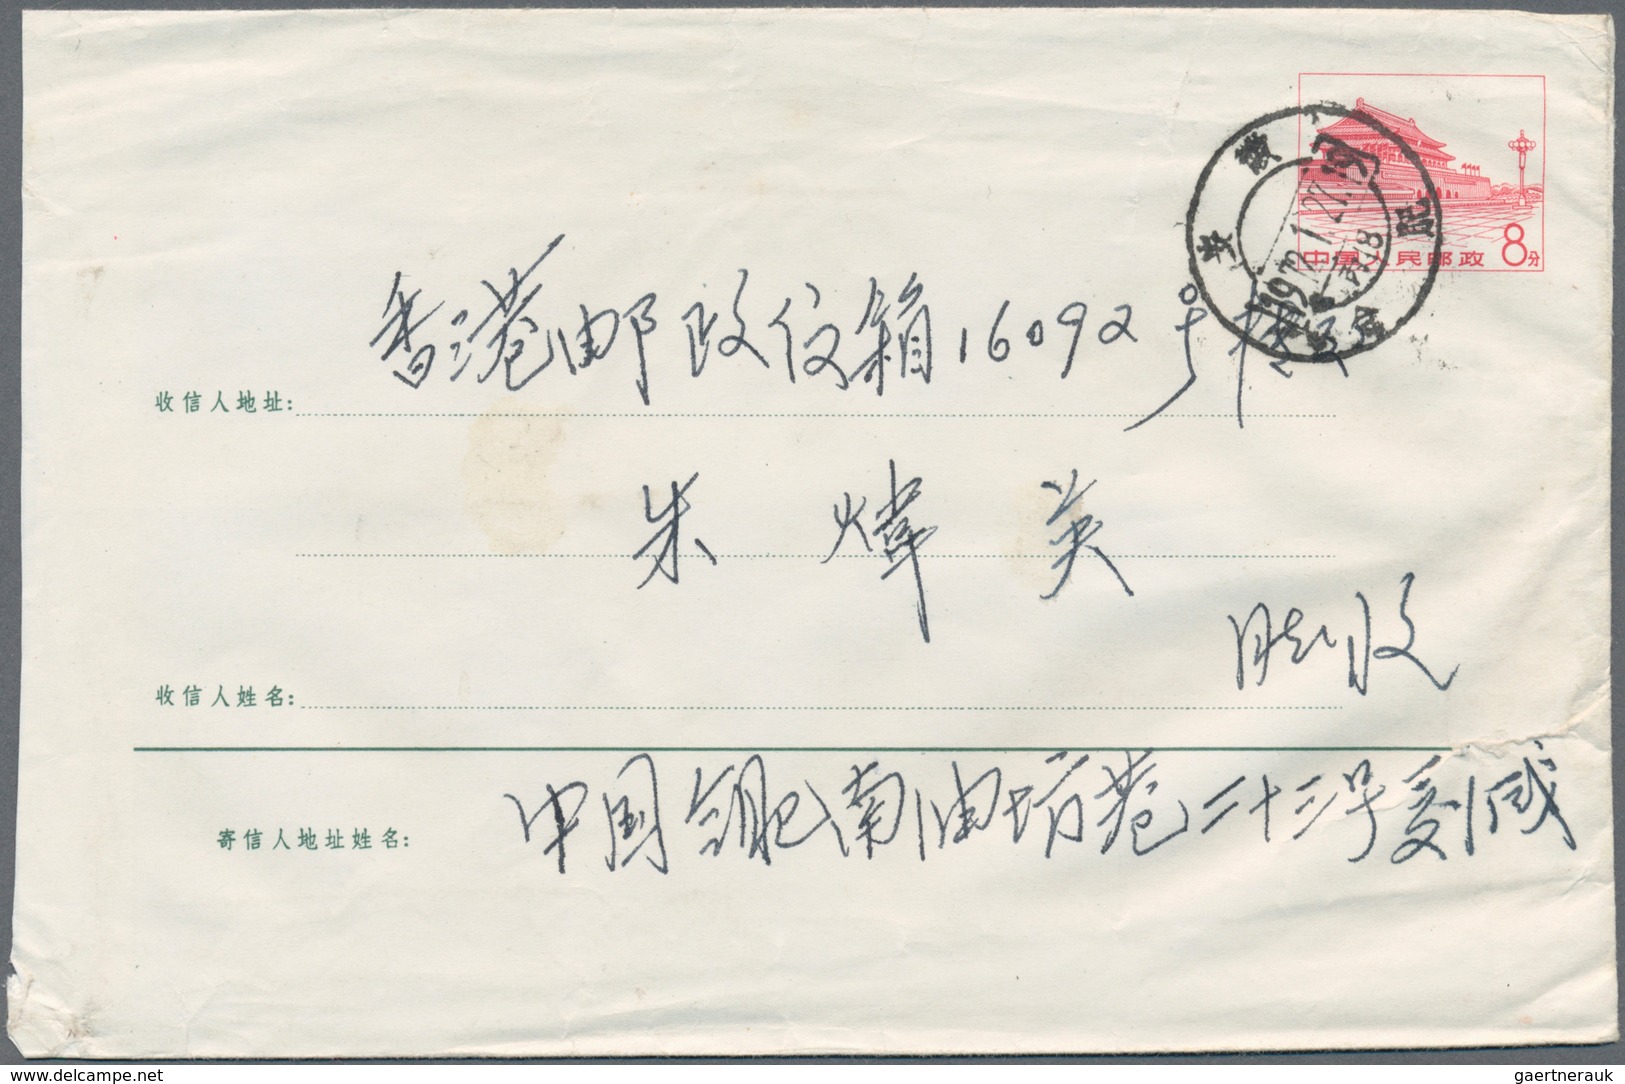 中国人民邮政 8分
安徽
1972.1.27.19
合肥
香港邮政信箱16092号
收信人地址:
朱煒英
收信人姓名:
收
中国合肥南油坊巷二十三号
寄信人地址姓名:
www.delcampe.net
gaertnerauk